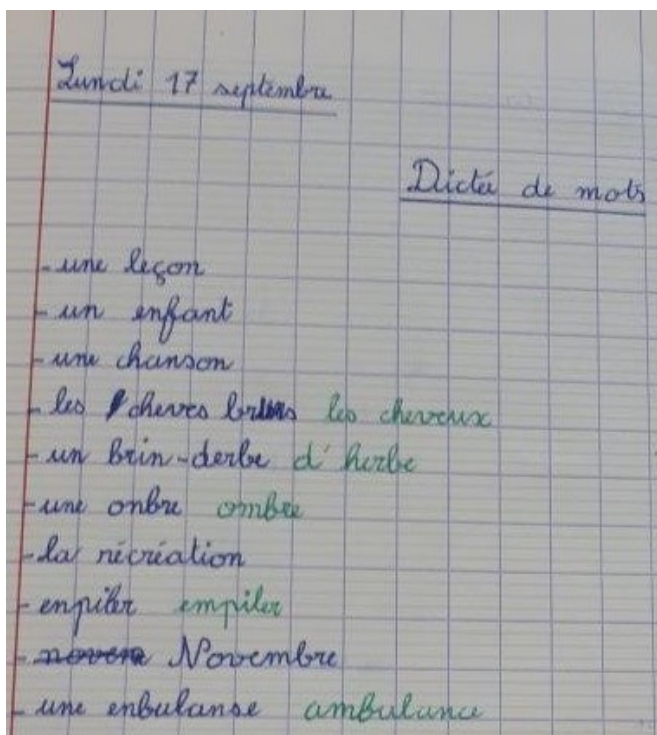 Lundi 17 septembre
Dictée de mots
- une leçon
- un enfant
- une chanson
- les cheves bruns les cheveux
- un brin-derbe d'herbe
- une onbre ombre
- la récréation
- enpiler empiler
- Novembre
- une enbulanse ambulance